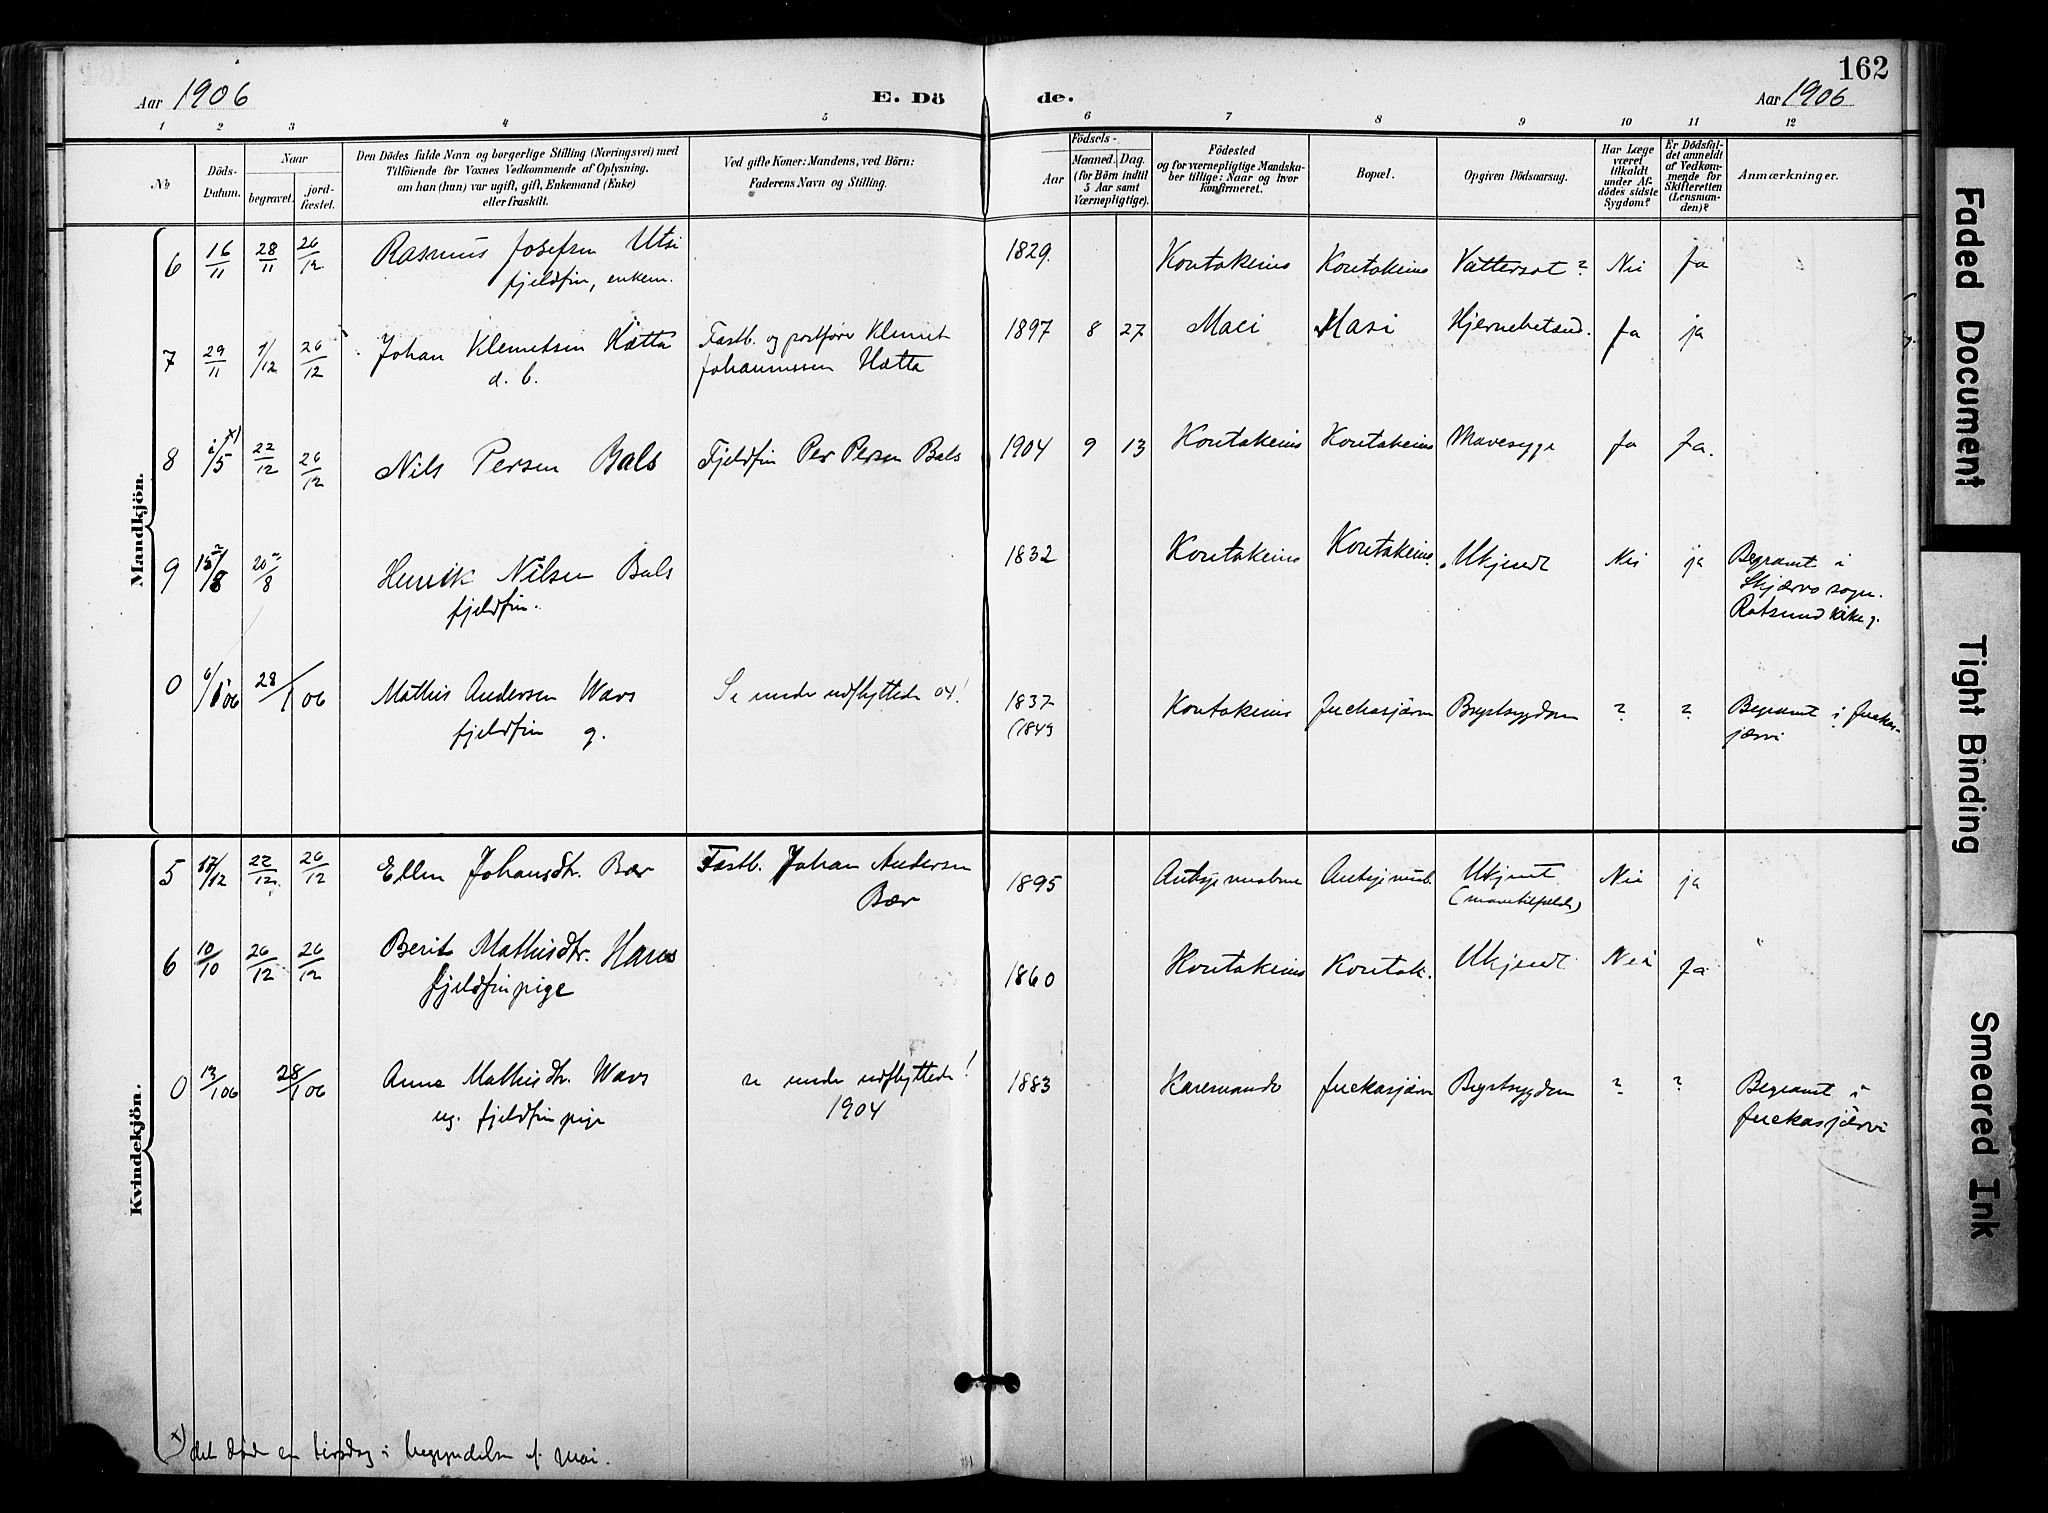 162
Aar 1906
E. Döde.
Aar 1906
1 2 3 4 5 6 7 8 9 10 11 12
No
Döds-
Datum.
Naar
begravet.
jord-
fæstet.
Den Dödes fulde Navn og borgerlige Stilling (Næringsvei) med
Tilföiende for Voxnes Vedkommende af Oplysning,
om han (hun) var ugift, gift, Enkemand (Enke)
eller fraskilt.
Ved gifte Koner: Mandens, ved Börn:
Faderens Navn og Stilling.
Födsels-
Aar
Maaned. Dag.
(for Börn indtil
5 Aar samt
Værnepligtige).
Födested
og for værnepligtige Mandska-
ber tillige: Naar og hvor
konfirmeret.
Bopæl.
Opgiven Dödsaarsag.
Har Læge
været
tilkaldt
under Af-
dödes sidste
Sygdom?
Er Dödsfal-
det anmeldt
af Vedkom-
mende for
Skifteretten
(Lensman-
den)?
Anmærkninger.
Mandkjön.
6 16/11 28/11 26/12 Rasmus Josefsen Utsi 1829. Koutokeino Koutokeino Vattersot? Nei Ja
fjeldfin, enkem.
7 29/11 1/12 26/12 Johan Klemetsen Hætta Fastb. og postfører Klemet 1897 8 27 Maci Masi Hjernebetænd. Ja ja
d. b. Johannessen Hætta
8 /5 x) 22/12 26/12 Nils Persen Bals Fjeldfin Per Persen Bals 1904 9 13 Koutokeino Koutokeino Mavesyge Ja Ja.
9 15/8 20/8 Henrik Nilsen Bals 1832 Koutokeino Koutokeino. Ukjendt Nei ja Begravet i
fjeldfin. Skjærvø sogn.
Rotsund kirkeg.
0 6/1 06 28/1 06 Mathis Andersen Wavs Se under udflyttede 04! 1837 Koutokeino Juckasjærvi Brystsygdom ? ? Begravet i Juckas-
fjeldfin g. (1849 jærvi
Kvindekjön.
5 17/12 22/12 26/12 Ellen Johansdtr. Bær Fastb. Johan Andersen 1895 Autsjevuobme Autsjevuob. Ukjent Nei ja
Bær (mavetilfælde)
6 10/10 26/12 26/12 Berit Mathisdtr. 1860 Koutokeino Koutok. Ukjendt Nei Ja
fjeldfinpige
0 13/1 06 28/1 06 Anna Mathisdtr. Wavs se under udflyttede! 1883 Karesuando Juckasjærvi Brystsygdom ? ? Begravet i
ug. fjeldfinpige 1904 Juckasjærvi
x) det døde en tirsdag i begyndelsen af mai.
Faded Document
Tight Binding
Smeared Ink